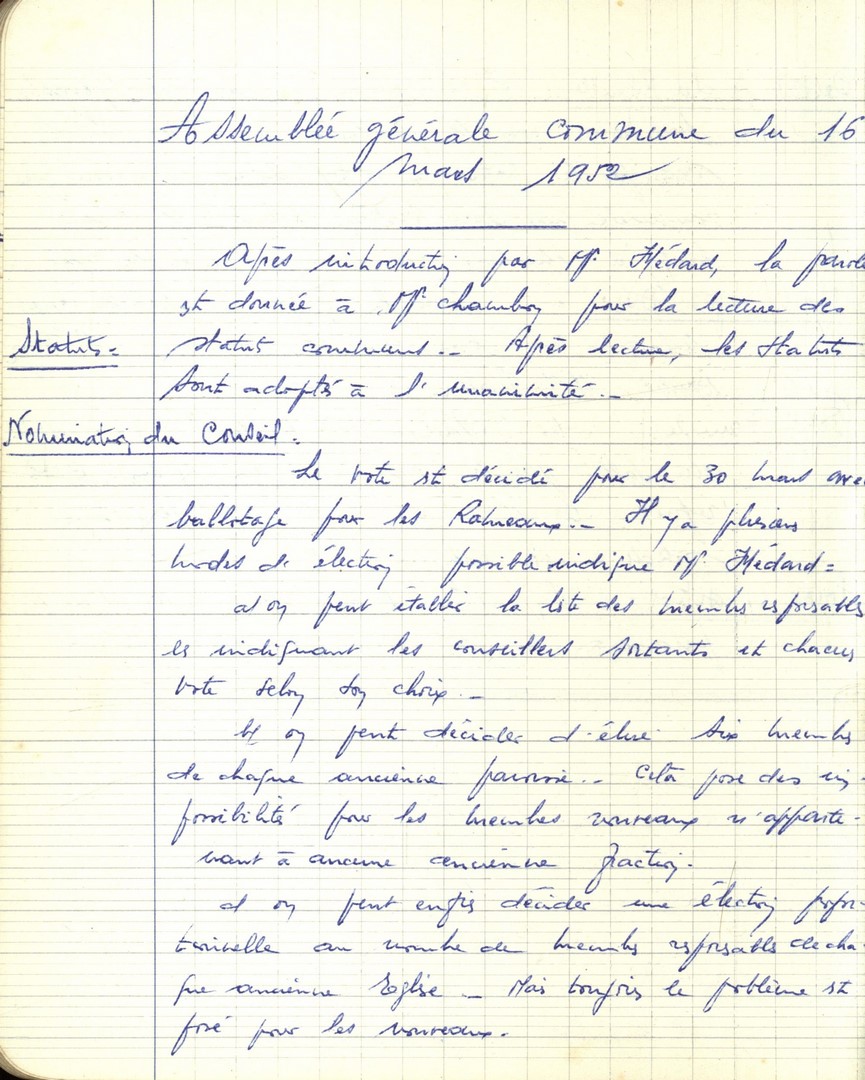 Assemblée générale commune du 16
mars 1952
Après introduction par Mr. Médard, la parole
est donnée à Mr chambon pour la lecture des
Statuts= statuts communs.- Après lecture, les statuts
sont adoptés à l'unanimité.-
Nomination du Conseil.
Le vote est décidé pour le 30 mars avec
ballotage pour les Rameaux.- Il y a plusieurs
modes d'élection possible indique Mr. Médard=
a/ on peut établir la liste des membres responsables
en indiquant les conseillers sortants et chacun
vote selon son choix.-
b/ on peut décider d'élire six membres
de chaque ancienne paroisse.- Cela pose des im-
possibilité pour les membres nouveaux n'apparte-
nant à aucune ancienne fraction.
c/ on peut enfin décider une élection propor-
tionnelle au nombre de membres responsables de cha-
que ancienne Eglise.- Mais toujours le problème est
posé pour les nouveaux.